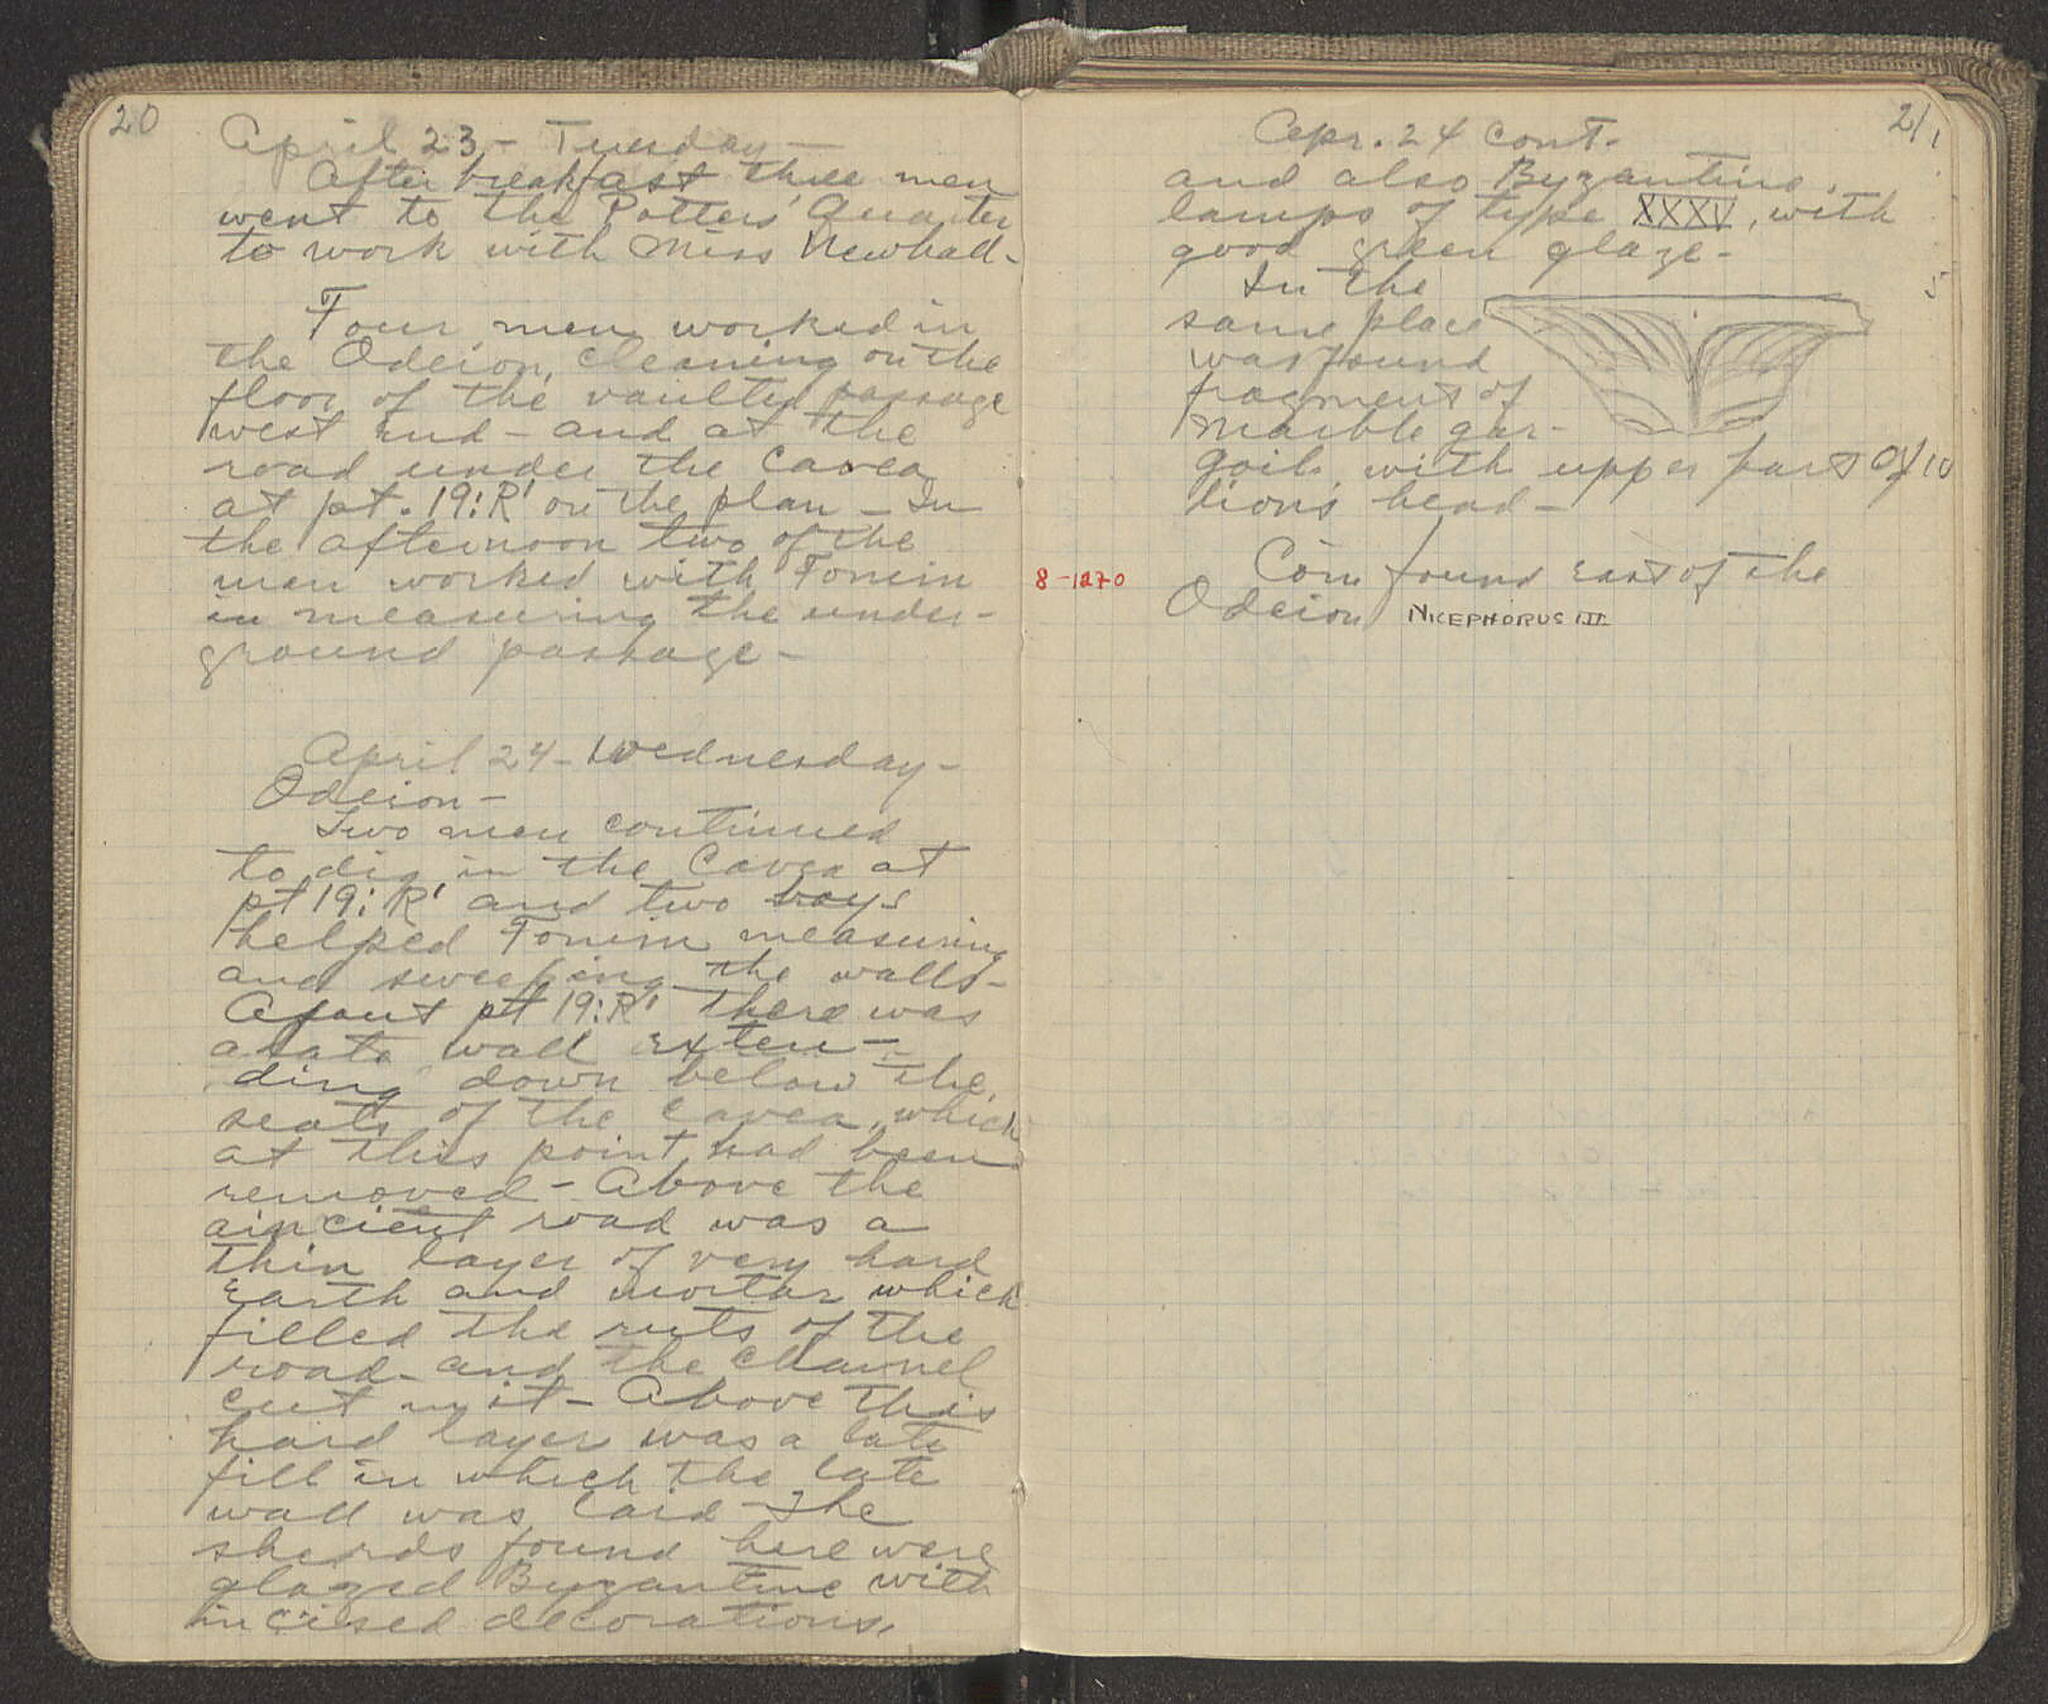 20
April 23 - Tuesday -
After breakfast three men
went to the Potters' Quarter
to work with Miss Newhall -
Four men worked in
the Odeion, cleaning on the
floor of the vaulted passage
west end - and at the
road under the Cavea
at pt. 19:R' on the plan - In
the afternoon two of the
men worked with Fomin
in measuring the under-
ground passage -
April 24 - Wednesday -
Odeion -
Two men continued
to dig in the Cavea at
pt 19:R' and two boys
helped Fomin measuring
and sweeping the walls -
About pt 19:R' there was
a late wall exten-
ding down below the
seats of the cavea, which
at this point had been
removed - Above the
ancient road was a
thin layer of very hard
earth and mortar which
filled the ruts of the
road - and the channel
cut in it - Above this
hard layer was a late
fill in which the late
wall was laid - The
sherds found here were
glazed Byzantine with
incised decorations,
21
Apr. 24 cont.
and also Byzantine
lamps of type XXXV, with
good green glaze -
In the
same place
was found
fragment of
marble gar-
goil with upper part of
lion's head -
8-1270
Coin found east of the
Odeion NICEPHORUS III
5
10